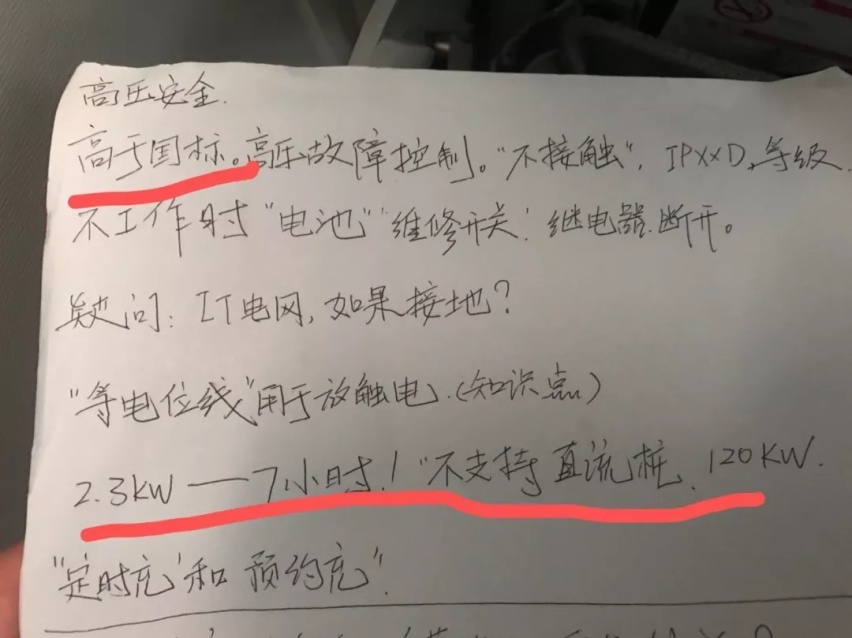 高压安全.
高于国标。高压故障控制。"不接触". IPXXD,等级.
不工作时"电池""维修开关'继电器.断开。
疑问:IT电网,如果接地?
"等电位线"用于放触电.(知识点)
2.3KW——7小时!"不支持直流桩. 120KW.
"定时充'和 预约充".